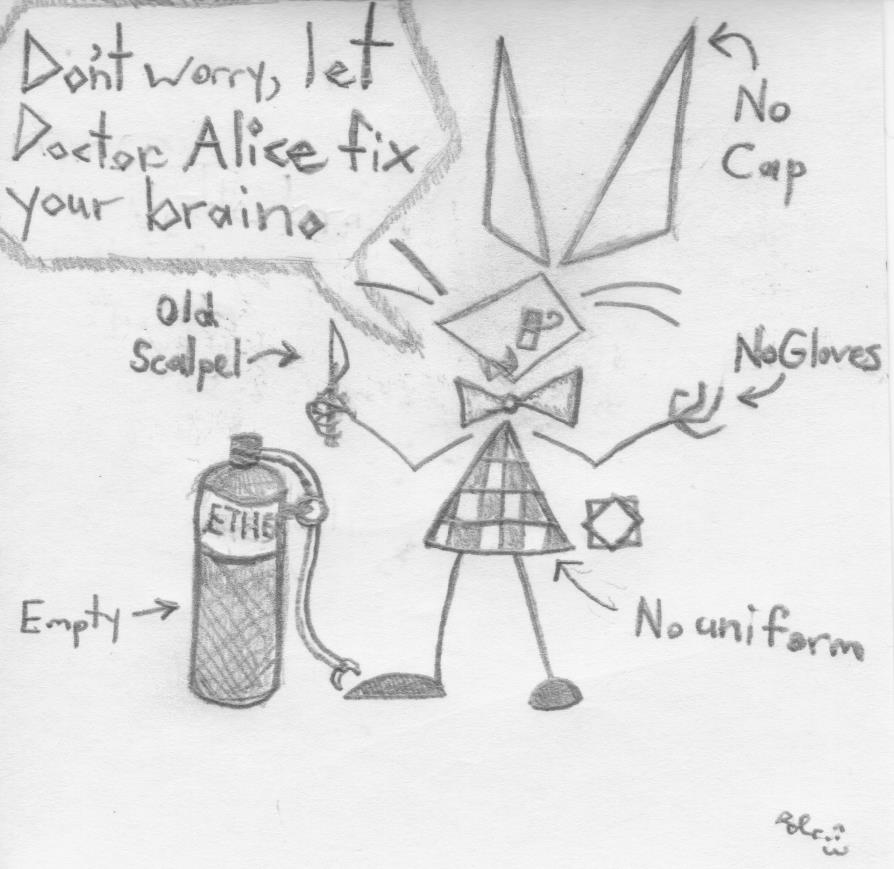 Don't worry, let
Doctor Alice fix
your brain.
No
Cap
Old
Scalpel
No Gloves
ETHE
Empty
No uniform